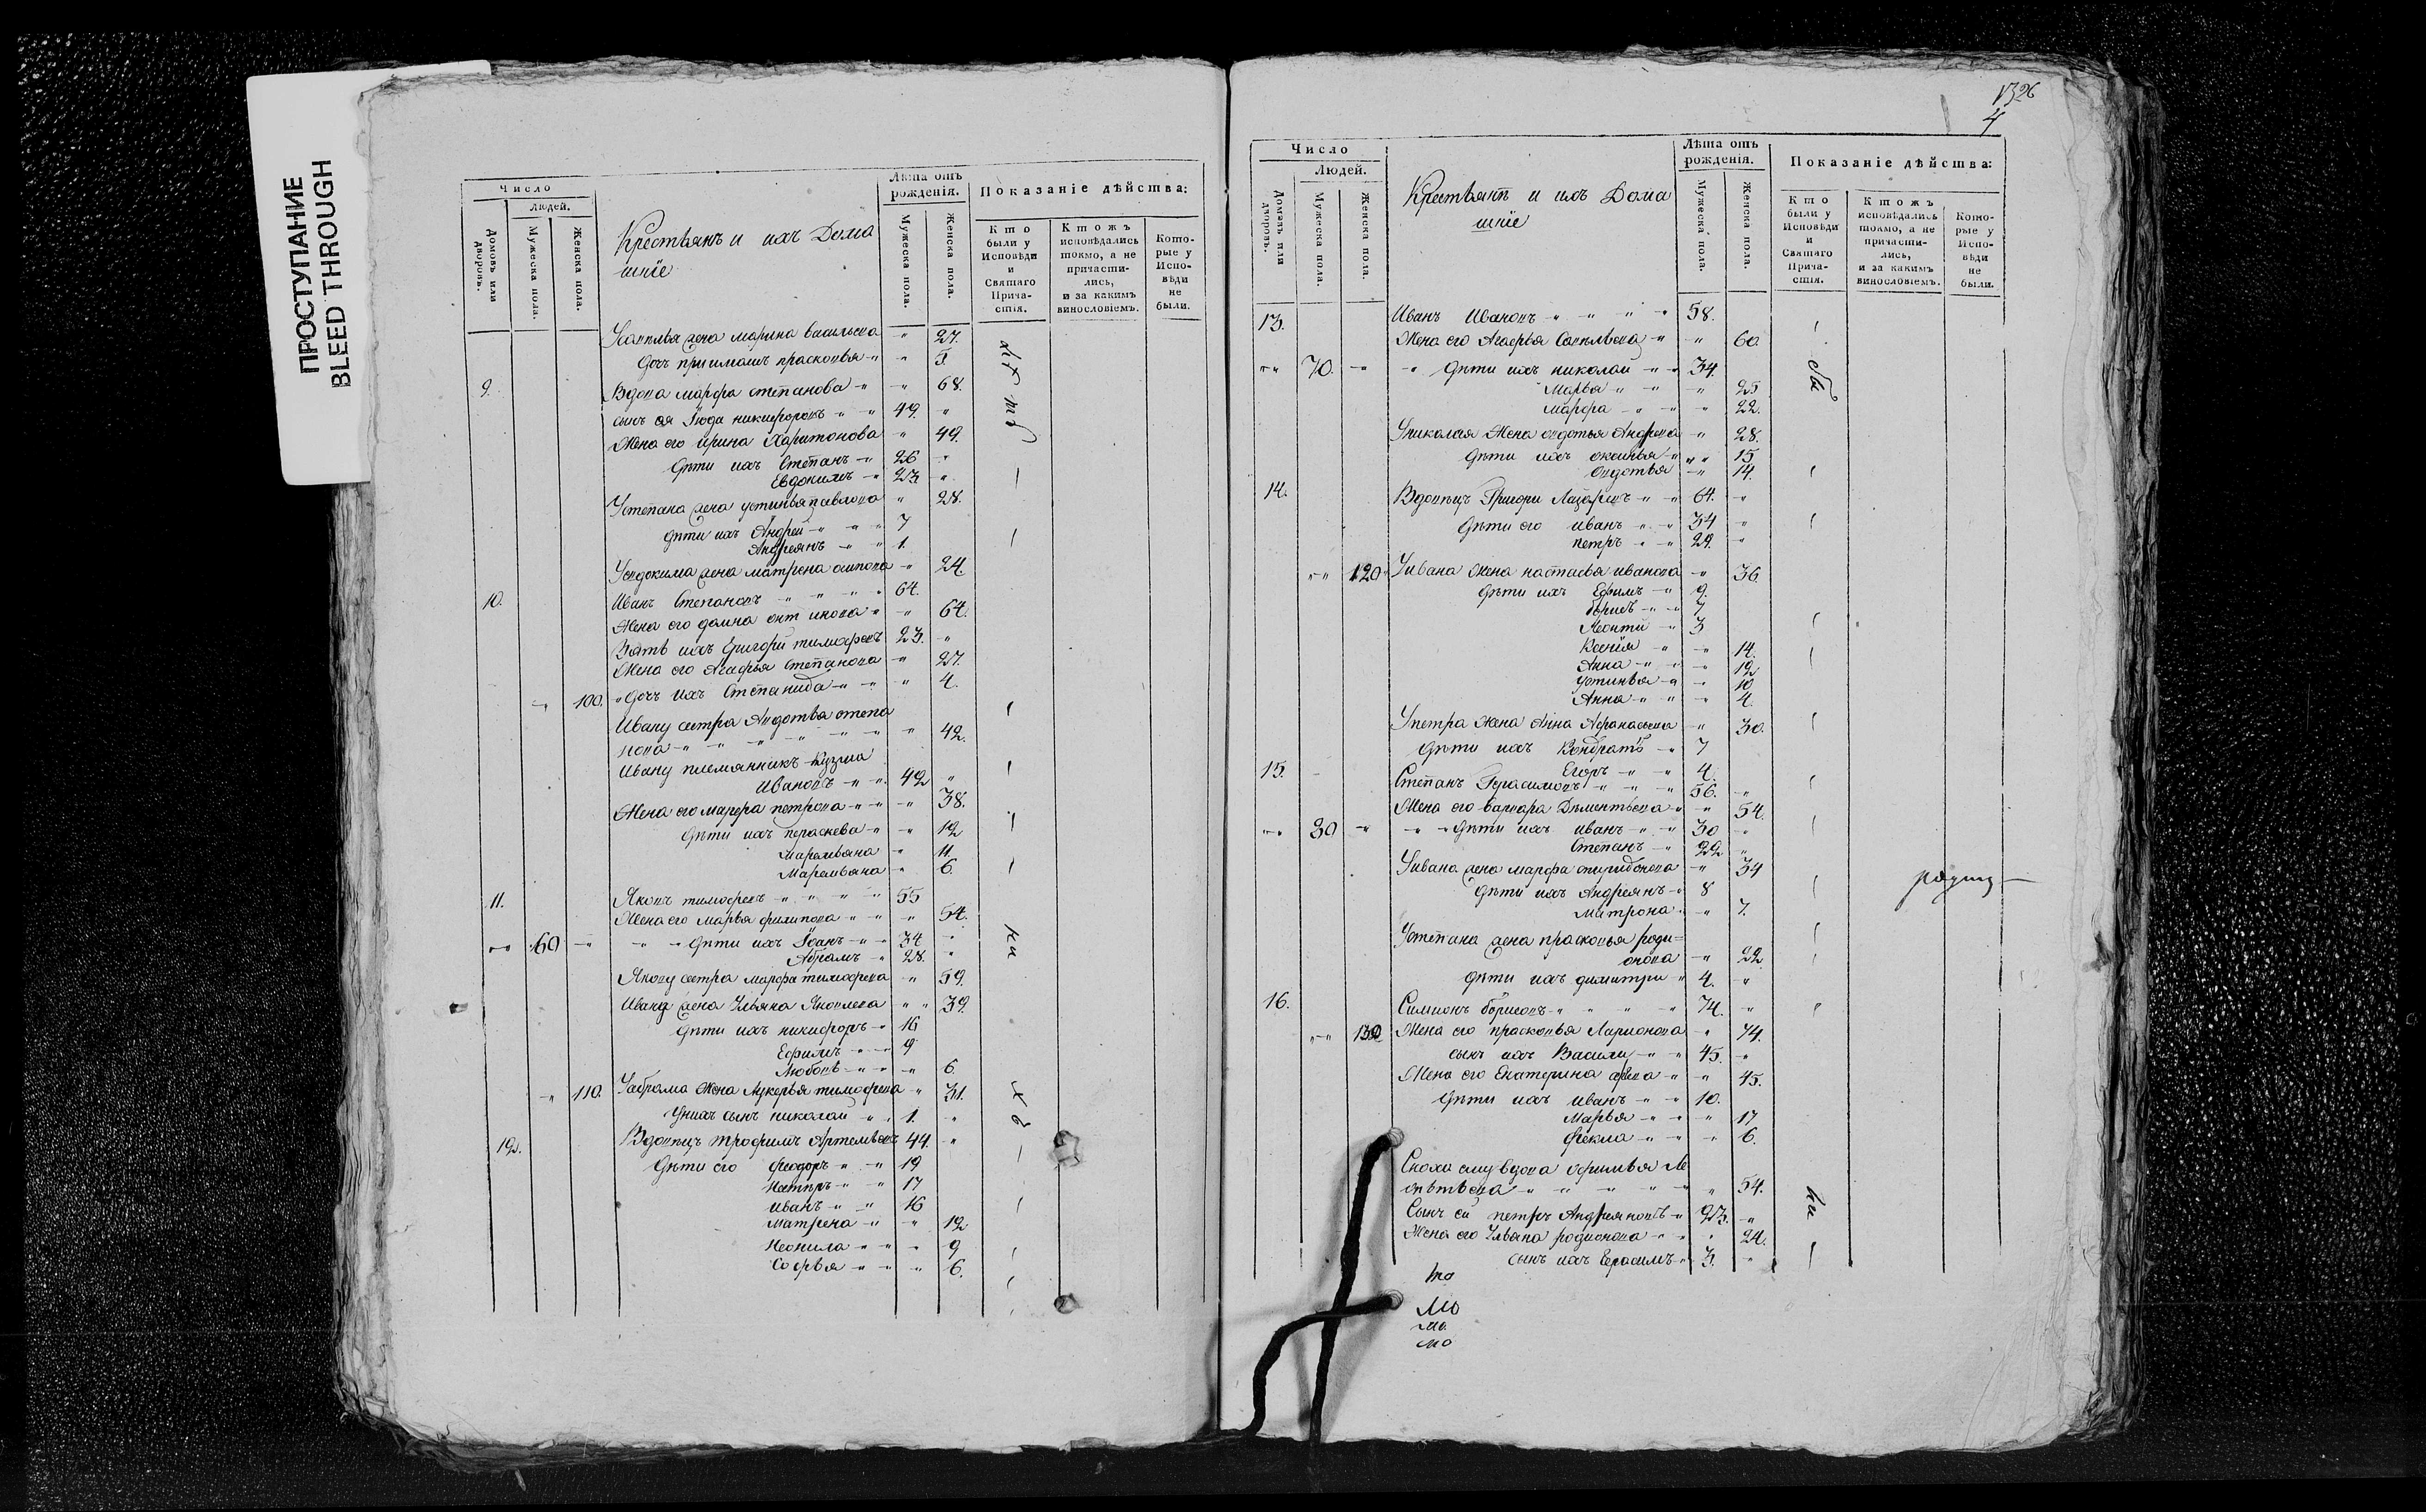 ПРОСТУПАНИЕ
BLEED THROUGH
Число
Людей.
Домовъ или дворовъ.
Мужеска пола.
Женска пола.
Крестьянъ и ихъ Дома
шніе
Лѣта отъ рожденія.
Мужеска пола.
Женска пола.
Показаніе дѣйства:
Кто были у Исповѣди и Святаго Прича-стія.
Ктожъ исповѣдались токмо, а не причасти-лись, и за какимъ винословіемъ.
Кото-рые у Испо-вѣди не были.
жена марина васильева " 27.
дочь приимышъ прасковья " " 5.
9. Вдова марфа степанова " " 68.
сынъ ея никифоровъ " " 49. "
Жена его ирина Харитонова " 49.
дѣти ихъ Степанъ " 26 "
Евдокимъ " 23 "
Устепана жена устинья павлова " 28.
дѣти ихъ Андрей " " " 7
Андреянъ " " 1.
Уевдокима жена матрена осипова " 24
10. Иванъ Степановъ " " " " 64.
Жена его домна " " 64.
Зять ихъ Григори тимофеевъ 23. "
Жена его Агафья Степанова " 27.
" 100. " дочь ихъ Степанида " " " 4.
Ивану сестра Авдотья степа
нова " " " " " " " 42.
Ивану племянникъ Кузма
Ивановъ " " 42 "
Жена его марфа петрова " " " 38.
дѣти ихъ параскева " " 12
Маремьяна " 11.
Маремьяна " 6.
11. Яковъ тимофеевъ " " " " 55
Жена его марья филипова " " " 54.
" " 60 " " " дѣти ихъ Іванъ " " 34 "
Абрамъ " 28. "
Якову сестра марфа тимофеева " 59.
Ивана жена Ульяна Яковлева " " 39.
дѣти ихъ никифоръ " 16
Ефимъ " " 9
Любовь " " " 6.
" 110. Уабрама Жена Лукерья тимофеева " 31.
Унихъ сынъ николай " " 1. "
12. Вдовецъ трофимъ Артемьевъ 44. "
дѣти его феодоръ " " 19
" " 17
иванъ " " 16
матрена " " 12
Неонила " " " 9
Софья " " " 6.
1326
4
Число
Людей.
Домовъ или дворовъ.
Мужеска пола.
Женска пола.
Крестьянъ и ихъ Дома
шніе
Лѣта отъ рожденія.
Мужеска пола.
Женска пола.
Показаніе дѣйства:
Кто были у Исповѣди и Святаго Прича-стія.
Ктожъ исповѣдались токмо, а не причасти-лись, и за какимъ винословіемъ.
Кото-рые у Испо-вѣди не были.
13. Иванъ Ивановъ " " " " 58.
Жена его Агафья Савельева " " 60.
" " 70. " " дѣти ихъ николаи " " 34.
Марья " " " 25
марфа " " " 22.
Униколая Жена авдотья Андреева " 28.
дѣти ихъ аксинья " " " 15
Авдотья " 14.
14. Вдовецъ Григори Лазаревъ " " 64. "
дѣти его иванъ " " 34 "
петръ " " 29. "
" " 120 Уивана Жена настасья иванова " 36.
дѣти ихъ Ефимъ " 9.
борисъ " " 7
Леонти " 3
Ксенія " " 14.
Анна " " " 12
устинья " " 10
Анна " " " 4.
Упетра жена Анна Афанасьева " 30.
дѣти ихъ Кондратъ " 7
Егоръ " " 4.
15. Степанъ Герасимовъ " " " 56. "
Жена его варвара Дементьева " " 54.
" " 80 " " " дѣти ихъ иванъ " " 30 "
Степанъ " 22 "
Уивана жена марфа спиридонова " 34
дѣти ихъ Андреянъ " 8
матрона " " 7.
Устепана жена прасковья роди=
онова " 22
дѣти ихъ димитри " 4. "
16. Симионъ борисовъ " " " " 74. "
" " 130 Жена его прасковья Ларионова " 74.
сынъ ихъ Васили " " 45. "
Жена его Екатерина " " 45.
дѣти ихъ иванъ " " 10.
Марья " " " 17
фекла " " " 6.
Сноха ему вдова Ефимья
" " " " " " 54.
Сынъ ей петръ Андреяновъ " 23. "
Жена его Ульяна родионова " " " 24.
сынъ ихъ Герасимъ " 3. "
то
мо
мо
мо